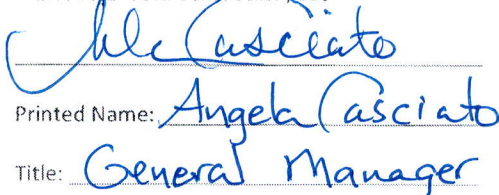 Casciato
Printed Name: Angela Casciato
Title: General Manager